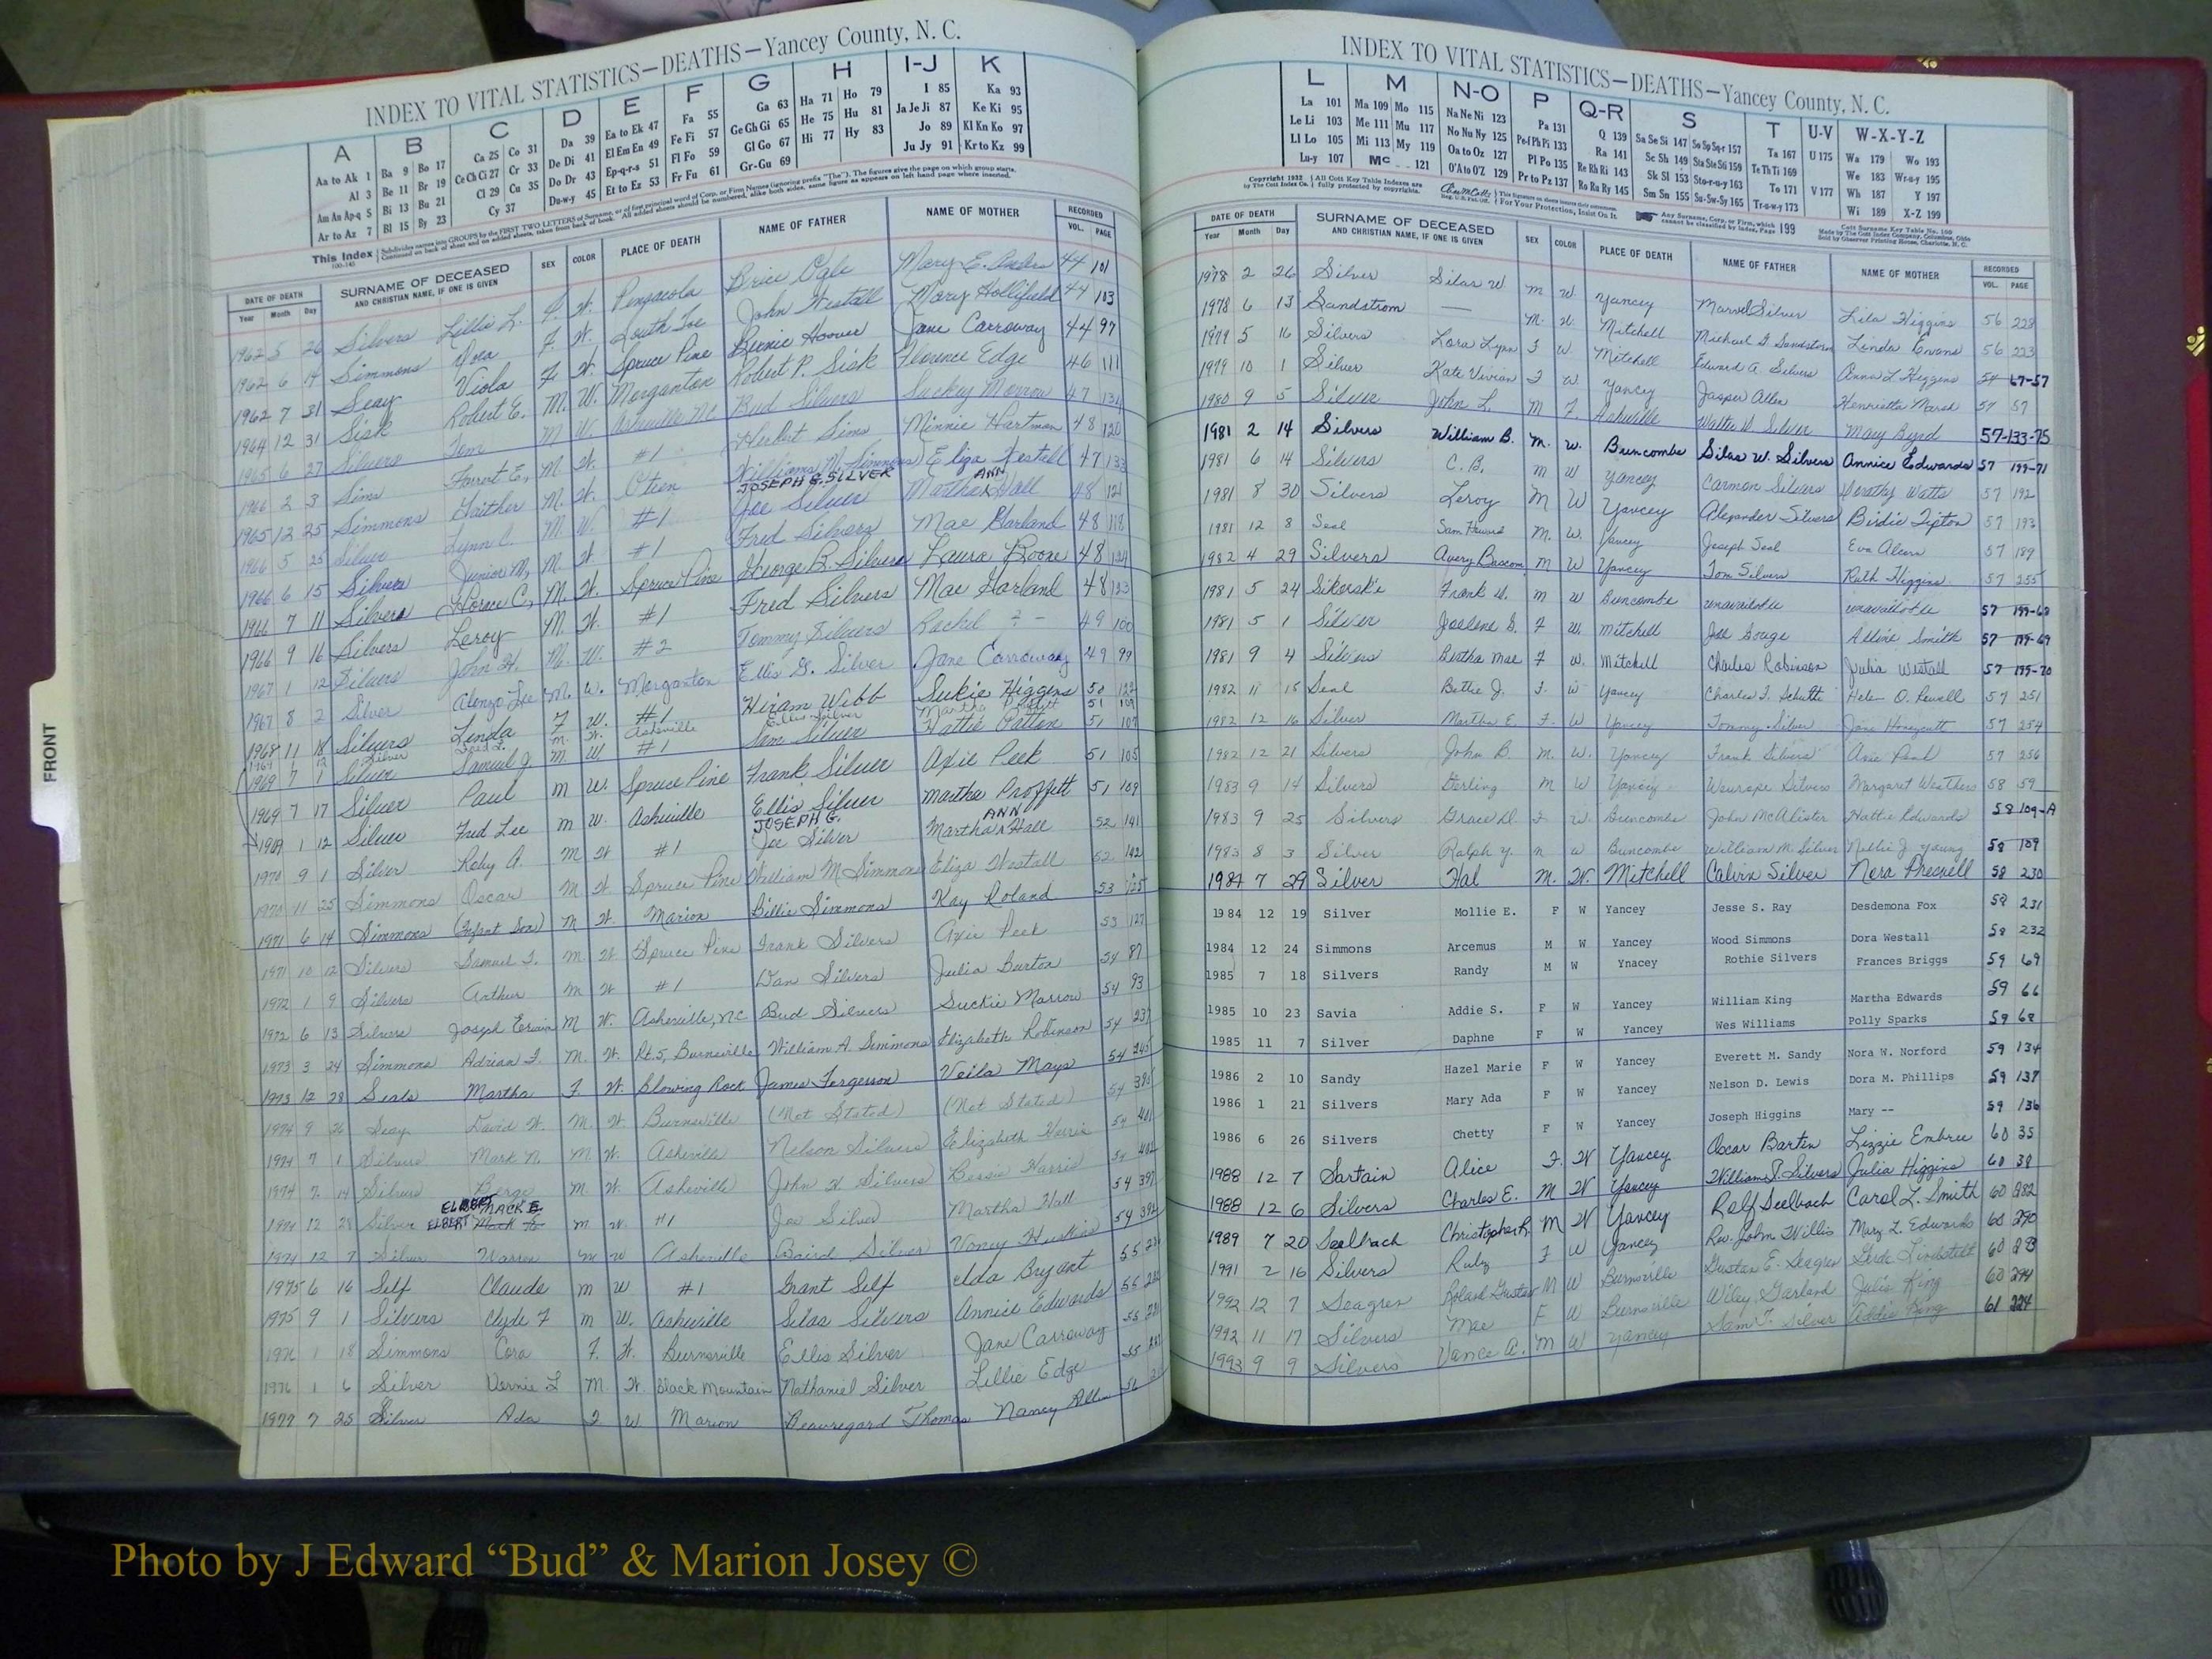 FRONT
INDEX TO VITAL STATISTICS—DEATHS—Yancey County, N. C.
A B C D E F G H I-J K
Aa to Ak 1 Ba 9 Bo 17 Ca 25 Co 31 Da 39 Ea to Ek 47 Fa 55 Ga 63 Ha 71 Ho 79 I 85 Ka 93
Al 3 Be 11 Br 19 Ce Ch Ci 27 Cr 33 De Di 41 El Em En 49 Fe Fi 57 Ge Gh Gi 65 He 75 Hu 81 Ja Je Ji 87 Ke Ki 95
Am An Ap-q 5 Bi 13 Bu 21 Cl 29 Cu 35 Do Dr 43 Ep-q-r-s 51 Fl Fo 59 Gl Go 67 Hi 77 Hy 83 Jo 89 Kl Kn Ko 97
Ar to Az 7 Bl 15 By 23 Cy 37 Du-w-y 45 Et to Ez 53 Fr Fu 61 Gr-Gu 69 Ju Jy 91 Kr to Kz 99
DATE OF DEATH SURNAME OF DECEASED AND CHRISTIAN NAME, IF ONE IS GIVEN SEX COLOR PLACE OF DEATH NAME OF FATHER NAME OF MOTHER RECORDED
Year Month Day VOL. PAGE
1962 5 26 Silvers Lillie L. F. W. Pensacola Brice Ogle Mary E. 44 101
1962 6 14 Simmons Dora F. W. South Toe John Westall Mary Hollifield 44 103
1962 7 31 Seay Viola F W. Spruce Pine Bernie Hoover Jane Carroway 44 97
1964 12 31 Sisk Robert E. M. W. Morganton Robert P. Sisk Florence Edge 46 111
1965 6 27 Silvers Tom M W. Asheville NC Bud Silvers Suckey Morrow 47 134
1966 2 3 Sims Forrest E., M. W. #1 Herbert Sims Minnie Hartman 48 120
1965 12 25 Simmons Gaither M. W. Oteen William M. Simmons Eliza Westall 47 133
1966 5 25 Silver Lynn C. M. W. #1 JOSEPH G. SILVER Joe Silver Martha ANN Hall 48 121
1966 6 15 Silvers Junior M, M. W. #1 Fred Silvers Mae Garland 48 118
1966 7 11 Silvers Horace C, M. W. Spruce Pine George B. Silvers Laura Boone 48 124
1966 9 16 Silvers Leroy M. W. #1 Fred Silvers Mae Garland 48 123
1967 1 12 Silvers John H. M. W. #2 Tommy Silvers Rachel ? - 49 100
1967 8 2 Silver Alonzo Lee M. W. Morganton Ellis G. Silver Jane Carroway 49 99
1968 11 18 Silvers Linda F W. #1 Hiram Webb Sukie Higgins 50 122
1969 1 12 Silver Fred L. M. W. Asheville Ellis Silver Martha Proffitt 51 109
1969 7 1 Silver Samuel J. M W #1 Tom Silver Hattie Patton 51 107
1969 7 17 Silver Paul M W. Spruce Pine Frank Silver Axie Peek 51 105
1969 1 12 Silver Fred Lee M W. Asheville Ellis Silver Martha Proffitt 51 109
1970 9 1 Silver Roby A. M W #1 JOSEPH G. Joe Silver Martha ANN Hall 52 141
1970 11 25 Simmons Oscar M W. Spruce Pine William M Simmons Eliza Westall 52 142
1971 6 14 Simmons (Infant Son) M W Marion Billie Simmons Kay Roland 53 125
1971 10 12 Silvers Samuel T. M. W. Spruce Pine Frank Silvers Axie Peek 53 127
1972 1 9 Silvers Arthur M W #1 Dan Silvers Julia Burton 54 87
1972 6 13 Silvers Joseph Erwin M W. Asheville, NC Bud Silvers Suckie Marrow 54 93
1973 3 24 Simmons Adrian F. M. W. Rt. 5, Burnsville William A. Simmons Elizabeth Robinson 54 237
1973 12 28 Seals Martha F. W. Blowing Rock James Fergerson Veila Mays 54 245
1974 9 26 Seay David W. M. W. Burnsville (Not Stated) (Not Stated) 54 395
1974 7 1 Silvers Mark N. M W. Asheville Nelson Silvers Elizabeth Harris 54 401
1974 7 14 Silvers Berge M W. Asheville John H Silvers Bessie Harris 54 402
1974 12 28 Silver ELBERT MACK E. M W. #1 Joe Silver Martha Hall 54 397
1974 12 7 Silver Warren M W Asheville Baird Silver Nancy Huskins 54 392
1975 6 16 Self Claude M W #1 Grant Self elda Bryant 55
1975 9 1 Silvers Clyde F M W. Asheville Silas Silvers Annice Edwards 55
1976 1 18 Simmons Cora F. W. Burnsville Ellis Silver Jane Carroway 55
1976 1 6 Silver Vernie L M. W. Black Mountain Nathaniel Silver Lillie Edge 55
1977 7 25 Silver Ada F W Marion Beauregard Thomas Nancy Allen 56
INDEX TO VITAL STATISTICS—DEATHS—Yancey County, N. C.
L M N-O P Q-R S T U-V W-X-Y-Z
La 101 Ma 109 Mo 115 Na Ne Ni 123 Pa 131 Q 139 Sa Se Si 147 So Sp Sq-r 157 Ta 167 U 175 Wa 179 Wo 193
Le Li 103 Me 111 Mu 117 No Nu Ny 125 Pe-f Ph Pi 133 Ra 141 Sc Sh 149 Sta Ste Sti 159 Te Th Ti 169 We 183 Wr-u-y 195
Ll Lo 105 Mi 113 My 119 Oa to Oz 127 Pl Po 135 Re Rh Ri 143 Sk Sl 153 Sto-r-u-y 163 To 171 V 177 Wh 187 Y 197
Lu-y 107 Mc 121 O'A to O'Z 129 Pr to Pz 137 Ro Ru Ry 145 Sm Sn 155 Su-Sw-Sy 165 Tr-u-w-y 173 Wi 189 X-Z 199
DATE OF DEATH SURNAME OF DECEASED AND CHRISTIAN NAME, IF ONE IS GIVEN SEX COLOR PLACE OF DEATH NAME OF FATHER NAME OF MOTHER RECORDED
Year Month Day VOL. PAGE
1978 2 26 Silver Silas W M W. Yancey Marvel Silver Lila Higgins 56 228
1978 6 13 Sandstrom — M. W. Mitchell Michael G Sandstrom Linda Evans 56 223
1979 5 16 Silvers Lora Lynn F W. Mitchell Edward A. Silvers Anna L Higgins 57
1979 10 1 Silver Kate Vivian F W. Yancey Jasper Allen Henrietta Marsh 57 57
1980 9 5 Silver John L. M F Asheville Walter W Silver Mary Byrd
1981 2 14 Silvers William B. M. W. Buncombe Silas W. Silvers Annice Edwards 57-133-75
1981 6 14 Silvers C. B. M W Yancey Carmon Silvers Dorothy Watts 57 199-71
1981 8 30 Silvers Leroy M W Yancey Alexander Silvers Birdie Tipton 57 192
1981 12 8 Seal Sam M. W. Yancey Joseph Seal Eva Alcorn 57 193
1982 4 29 Silvers Avery Bascom M W Yancey Tom Silvers Ruth Higgins 57 189
1981 5 24 Sikorski Frank W. M W Buncombe unavailable unavailable 57 255
1981 5 1 Silver Joelene G. F W. Mitchell Joe Gouge Alline Smith 57 199-69
1981 9 4 Silvers Bertha Mae F W. Mitchell Charles Robinson Julia Westall 57 199-70
1982 11 15 Seal Bettie J. F. W Yancey Charles F. Schutte Helen O. Powell 57 251
1982 12 16 Silver Martha E. F. W Yancey Tommy Silver Jane Honeycutt 57 254
1982 12 21 Silvers John B. M. W. Yancey Frank Silvers 57 256
1983 9 14 Silvers Sterling M W Yancey Silvers Margaret Weathers 58 59
1983 9 25 Silvers Grace D. F W. Buncombe John McAlister Hattie Edwards 58 109-A
1983 8 3 Silver Ralph Y. M W Buncombe William M Silver Nellie J Young 58 109
1984 7 29 Silver Hal M. W. Mitchell Calvin Silver Nora Presnell 58 230
1984 12 19 Silver Mollie E. F W Yancey Jesse S. Ray Desdemona Fox 58 231
1984 12 24 Simmons Arcemus M W Yancey Wood Simmons Dora Westall 58 232
1985 7 18 Silvers Randy M W Ynacey Rothie Silvers Frances Briggs 59 69
1985 10 23 Savia Addie S. F W Yancey William King Martha Edwards 59 66
1985 11 7 Silver Daphne F W Yancey Wes Williams Polly Sparks 59 68
1986 2 10 Sandy Hazel Marie F W Yancey Everett M. Sandy Nora W. Norford 59 134
1986 1 21 Silvers Mary Ada F W Yancey Nelson D. Lewis Dora M. Phillips 59 137
1986 6 26 Silvers Chetty F W Yancey Joseph Higgins Mary -- 59 136
1988 12 7 Sartain Alice F. W Yancey Oscar Barten Lizzie Embree 60 35
1988 12 6 Silvers Charles E. M W Yancey William T. Silvers Julia Higgins 60 38
1989 7 20 Seelbach Christopher R. M W Yancey Ralf Seelbach Carol L. Smith 60 282
1991 2 16 Silvers Ruby F W Yancey Rev. John Willis Mary L. Edwards 60 290
1992 12 7 Seagren Roland Gustav M W Burnsville Gustav E. Seagren 60
1992 11 17 Silvers Mae F W Burnsville Wiley Garland Julia King 60 294
1993 9 9 Silvers Vance A. M W Yancey Sam T. Silver Addie King 61 224
Photo by J Edward “Bud” & Marion Josey ©